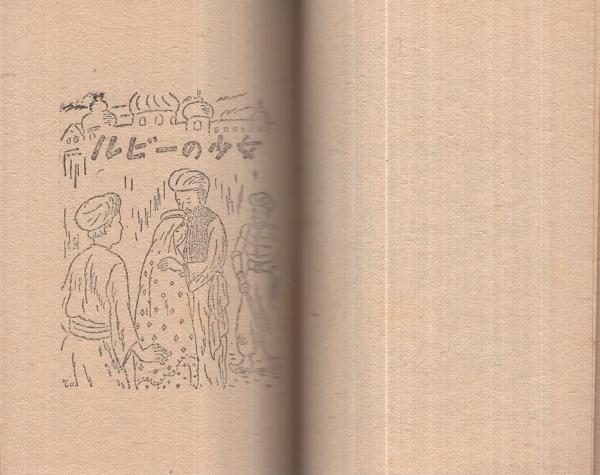 ルビーの少女